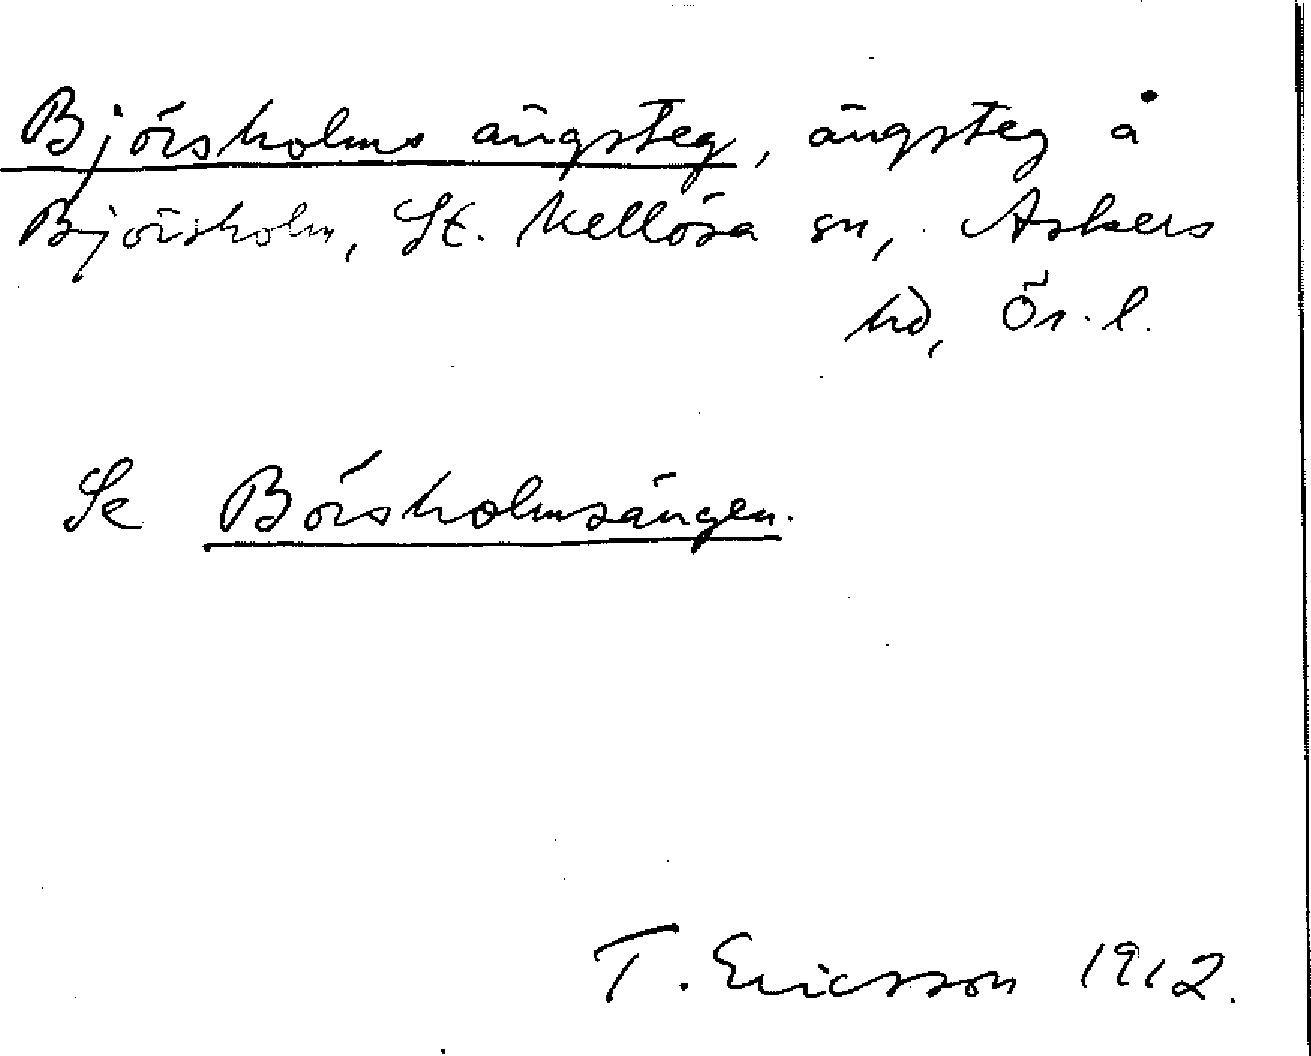 Björsholms ängsteg, ängsteg å
Björsholm, St. Mellösa sn, Askers
hd, Ör. l.
Se Börsholmsängen.
T. Ericsson 1912.